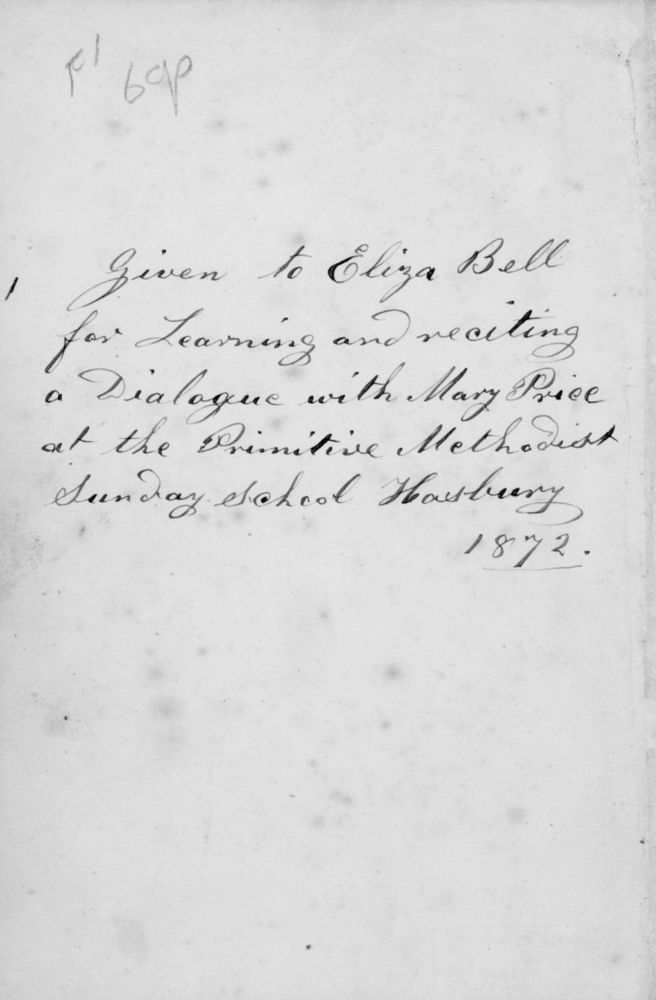 60p
Given to Eliza Bell
for Learning and reciting
a Dialogue with Mary Price
at the Primitive Methodist
Sunday School Hasbury
1872.